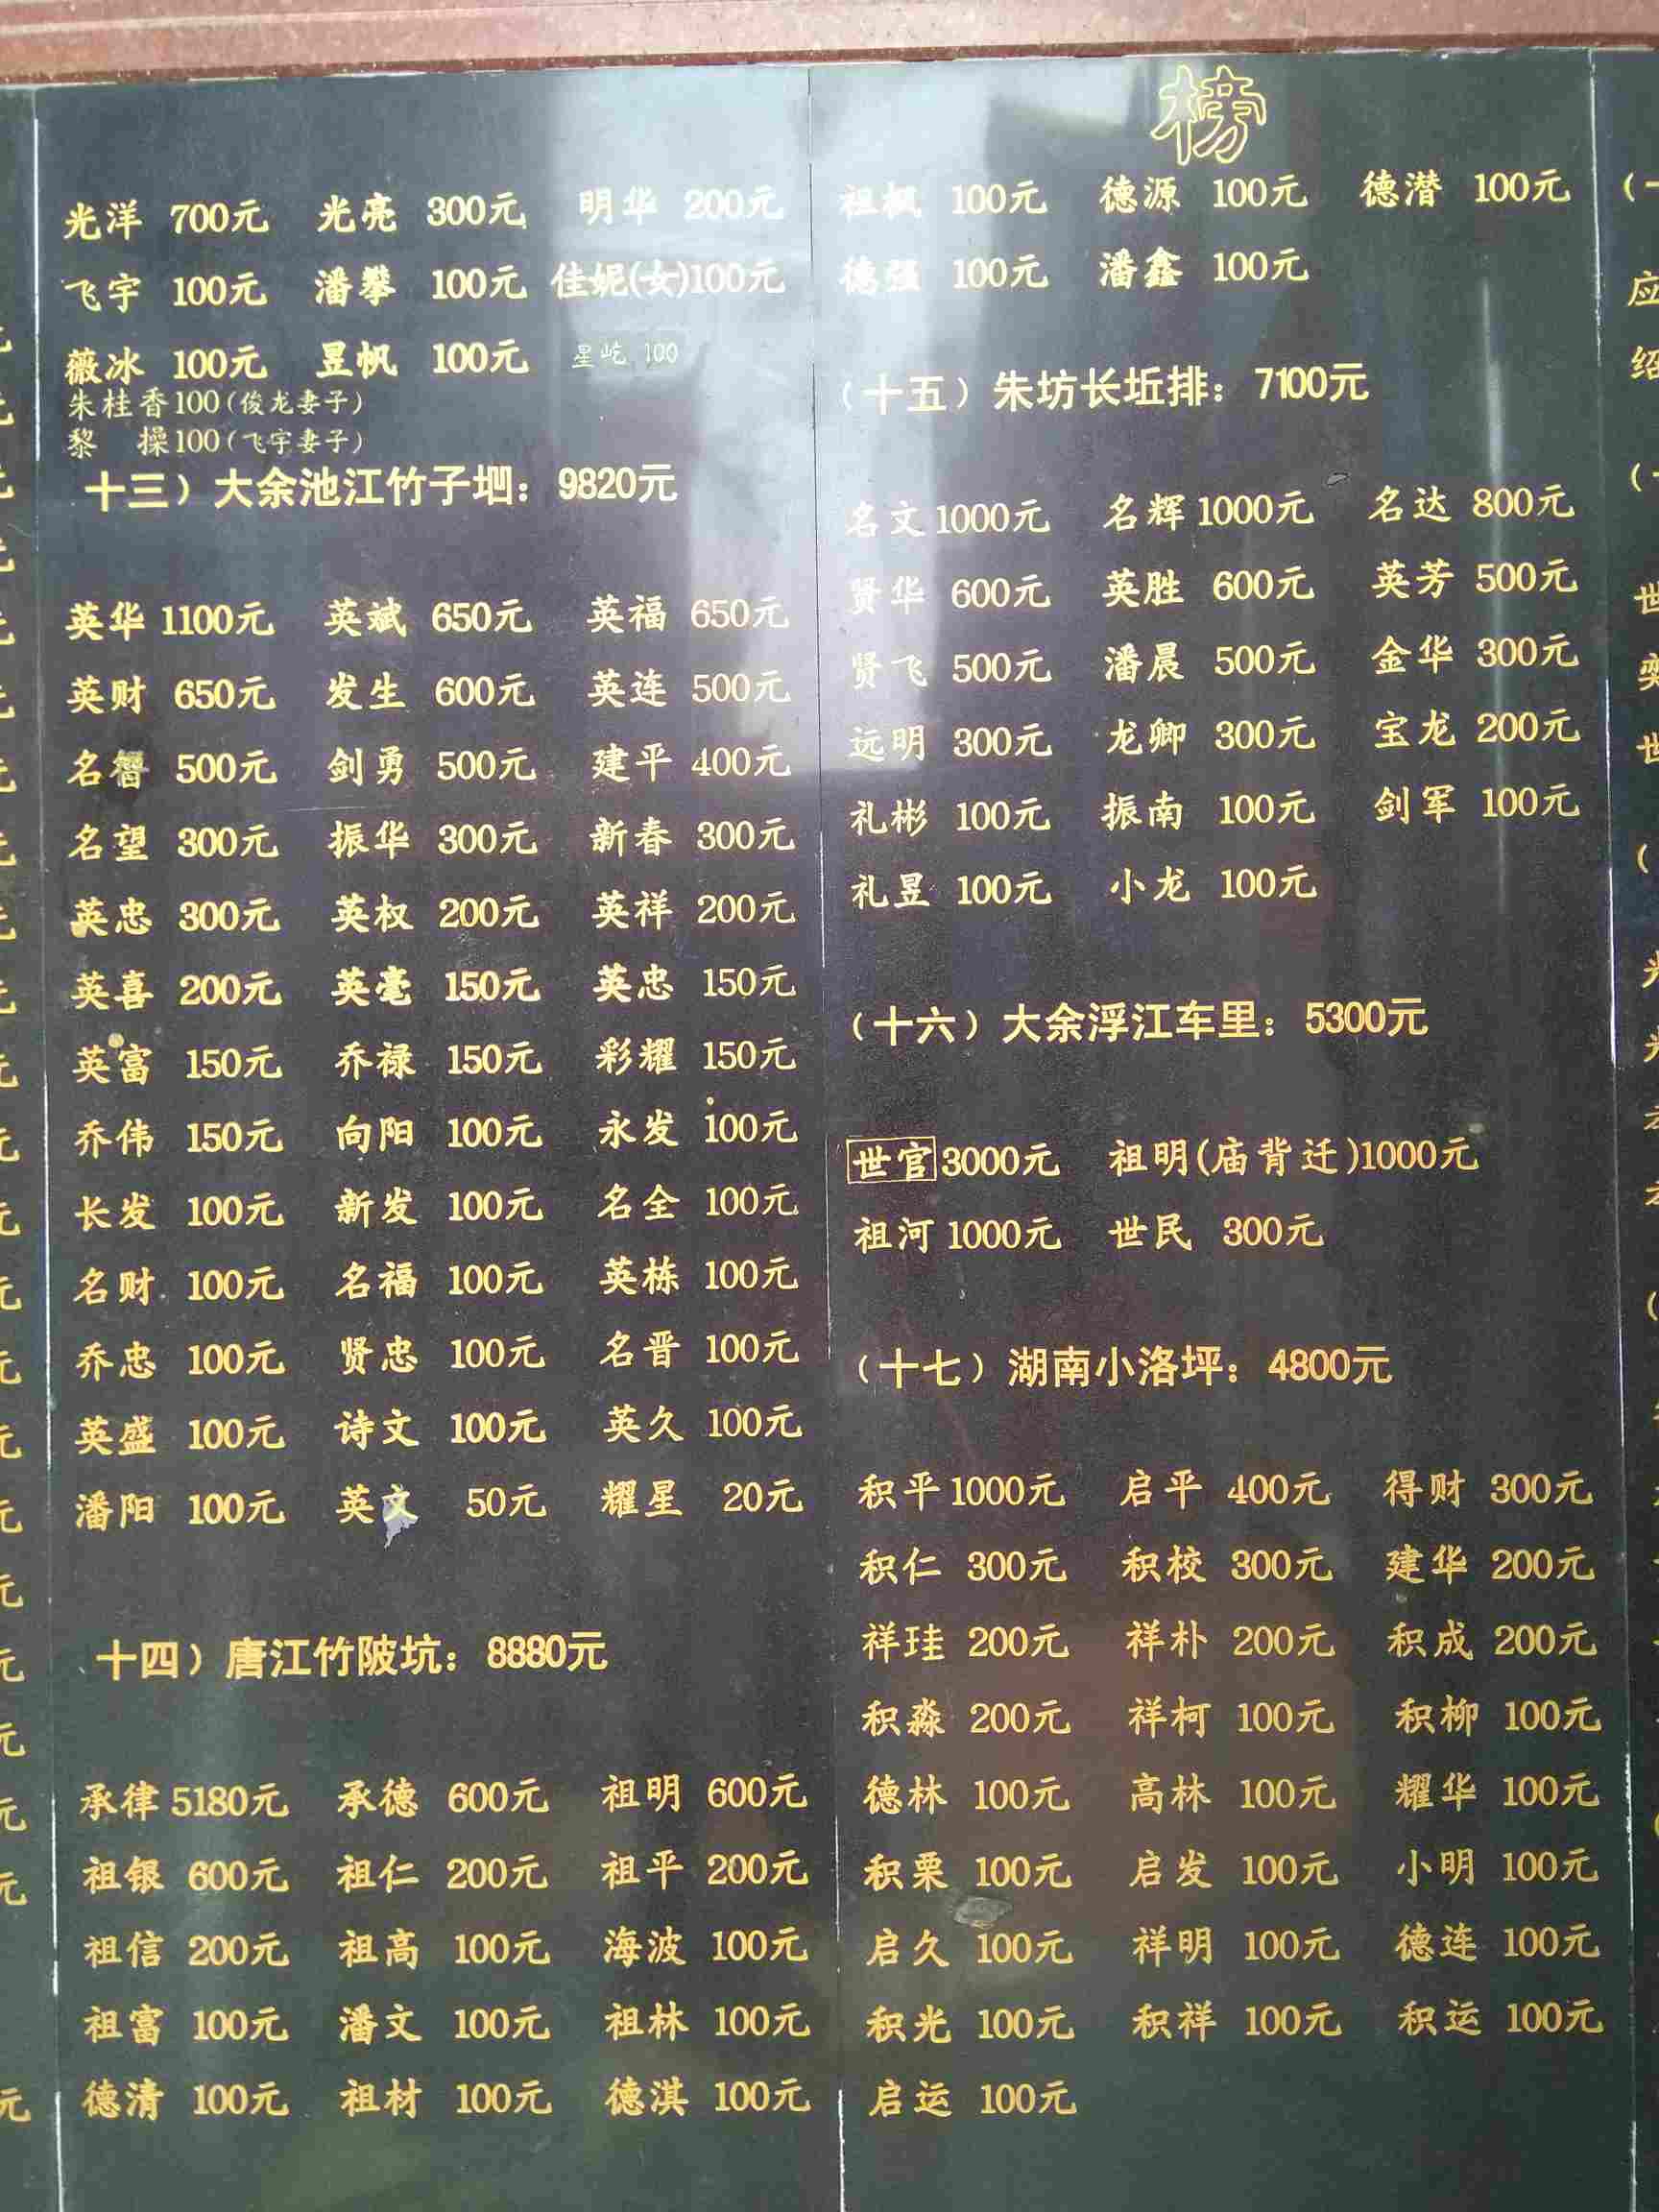 光洋 700元 光亮 300元 明华 200元
飞宇 100元 潘攀 100元 佳妮(女)100元
薇冰 100元 昱帆 100元 星屹 100
朱桂香100(俊龙妻子)
黎 操100(飞宇妻子)
十三）大余池江竹子垇：9820元
英华 1100元 英斌 650元 英福 650元
英财 650元 发生 600元 英连 500元
名 500元 剑勇 500元 建平 400元
名望 300元 振华 300元 新春 300元
英忠 300元 英权 200元 英祥 200元
英喜 200元 英毫 150元 英忠 150元
英富 150元 乔禄 150元 彩耀 150元
乔伟 150元 向阳 100元 永发 100元
长发 100元 新发 100元 名全 100元
名财 100元 名福 100元 英栋 100元
乔忠 100元 贤忠 100元 名晋 100元
英盛 100元 诗文 100元 英久 100元
潘阳 100元 英文 50元 耀星 20元
十四）唐江竹陂坑：8880元
承律 5180元 承德 600元 祖明 600元
祖银 600元 祖仁 200元 祖平 200元
祖信 200元 祖高 100元 海波 100元
祖富 100元 潘文 100元 祖林 100元
德清 100元 祖材 100元 德淇 100元
榜
祖枫 100元 德源 100元 德潜 100元
德强 100元 潘鑫 100元
（十五）朱坊长坵排：7100元
名文 1000元 名辉 1000元 名达 800元
贤华 600元 英胜 600元 英芳 500元
贤飞 500元 潘晨 500元 金华 300元
远明 300元 龙卿 300元 宝龙 200元
礼彬 100元 振南 100元 剑军 100元
礼昱 100元 小龙 100元
（十六）大余浮江车里：5300元
世官 3000元 祖明(庙背迁)1000元
祖河 1000元 世民 300元
（十七）湖南小洛坪：4800元
积平 1000元 启平 400元 得财 300元
积仁 300元 积校 300元 建华 200元
祥珪 200元 祥朴 200元 积成 200元
积淼 200元 祥柯 100元 积柳 100元
德林 100元 高林 100元 耀华 100元
积栗 100元 启发 100元 小明 100元
启久 100元 祥明 100元 德连 100元
积光 100元 积祥 100元 积运 100元
启运 100元